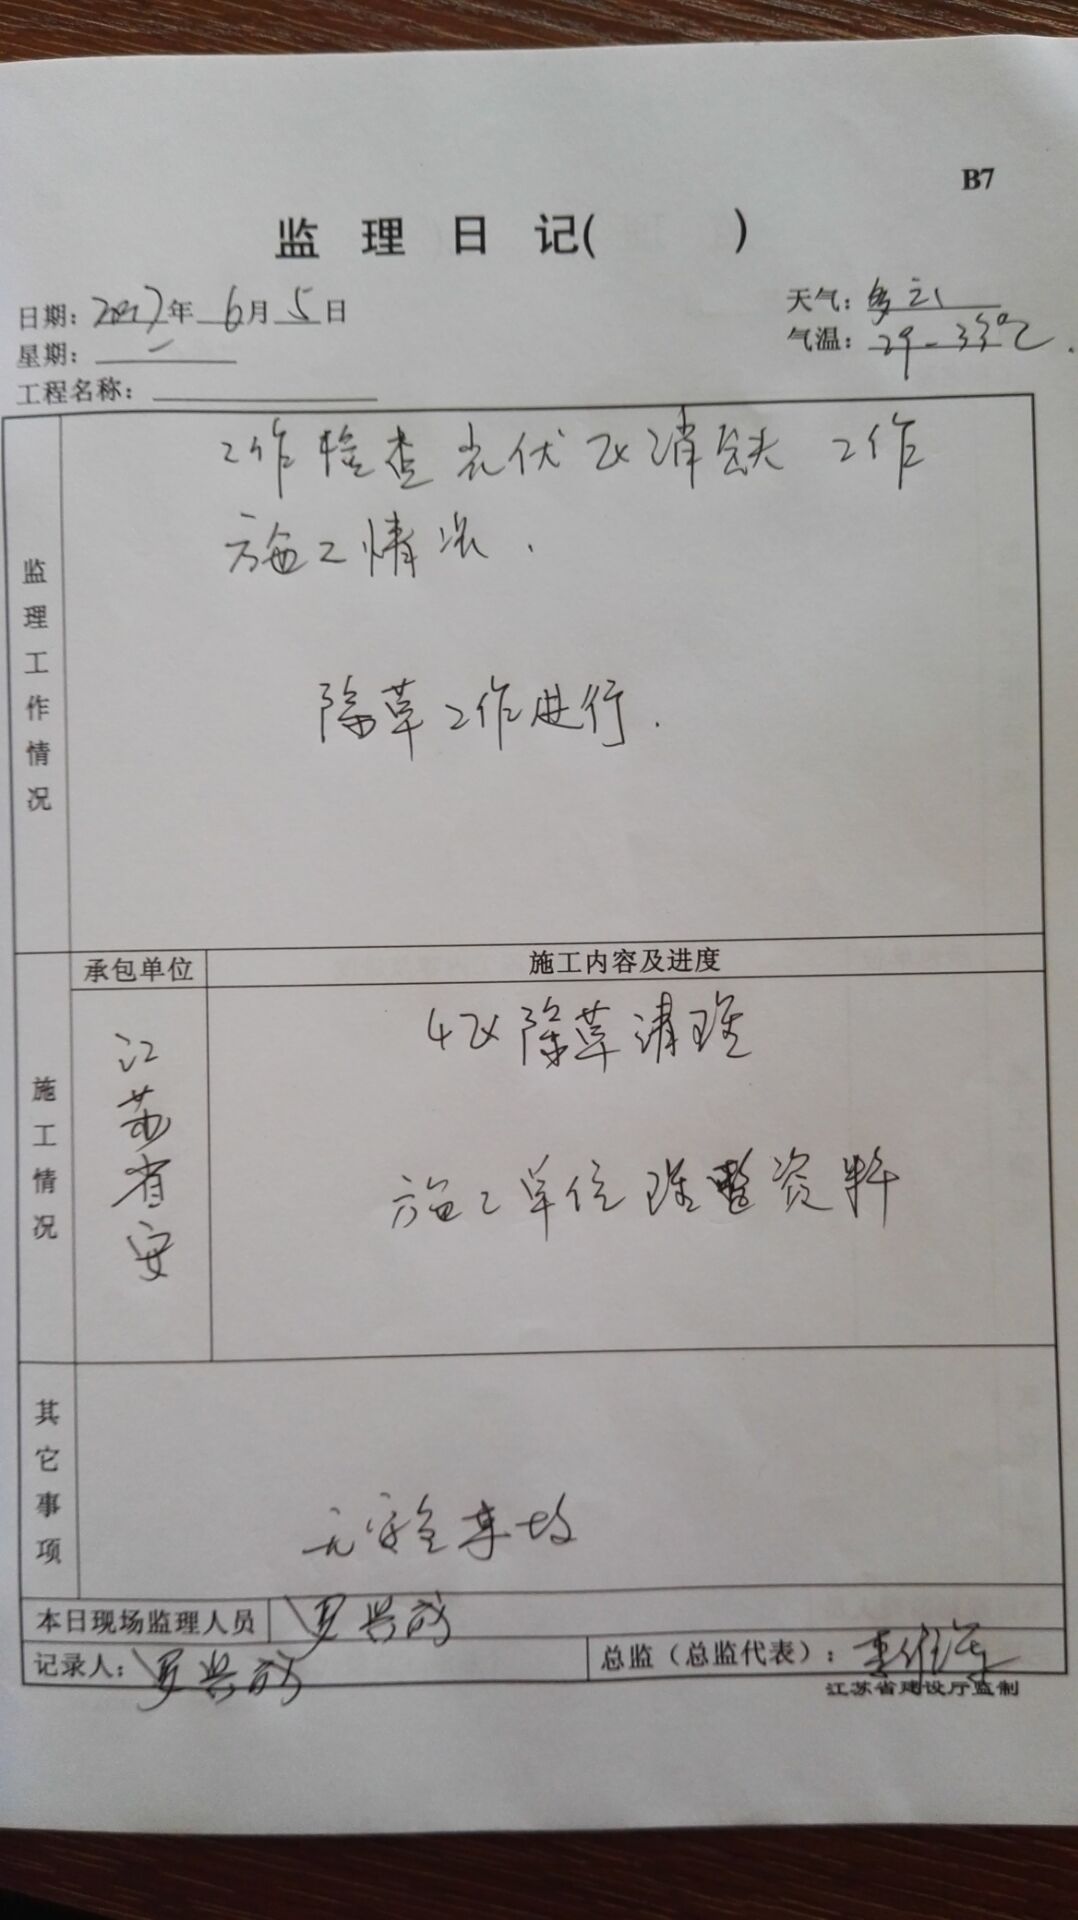 B7
监理日记(　　)
日期：2017年 6月 5日
天气：多云
星期：一
气温：29-33℃.
工程名称：
监理工作情况
工作检查光伏区消缺工作
施工情况.
除草工作进行.
施工情况
承包单位
施工内容及进度
江苏省安
4区除草清理
施工单位理整资料
其它事项
无安全事故
本日现场监理人员
记录人：
总监（总监代表）：
江苏省建设厅监制